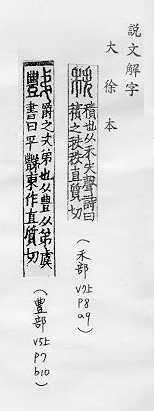 説文解字
大徐本
秩 積也从禾失聲詩曰
積之秩秩直質切
(禾部 V7上 p8 a9)
豑 爵之次弟也从豊从弟虞
書曰平豑東作直質切
(豊部 V5上 p7 b10)